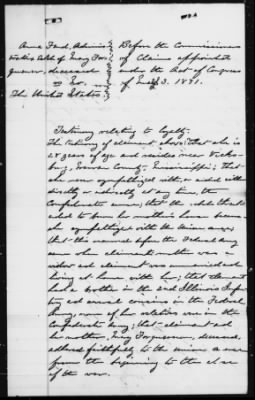 Anna Ford, Adminis-
tratrix Estate of Mary Fer-
guson, deceased
vs. No.
The United States
Before the Commissioners
of Claims appointed
under the Act of Congress
of 3, 1871.
Testimony relating to loyalty.
The testimony of claimant shows: That she is
28 years of age and resides near Vicks-
burg, Warren County, Mississippi; That
she never sympathized with, or aided either
directly or indirectly at any time the
Confederate cause; that the rebels threat-
ened to burn her mother's house because
she sympathized with the Union cause;
that this was and before the Federal Army
came when claimant's mother was a
widow and claimant was unmarried and
living at home with her; that claimant
had a brother in the 2nd Illinois Infan-
try and several cousins in the Federal
Army, none of her relatives were in the
Confederate Army; that claimant and
her mother, Mary Ferguson, deceased,
adhered faithfully to the Union cause
from the beginning to the close
of the war.